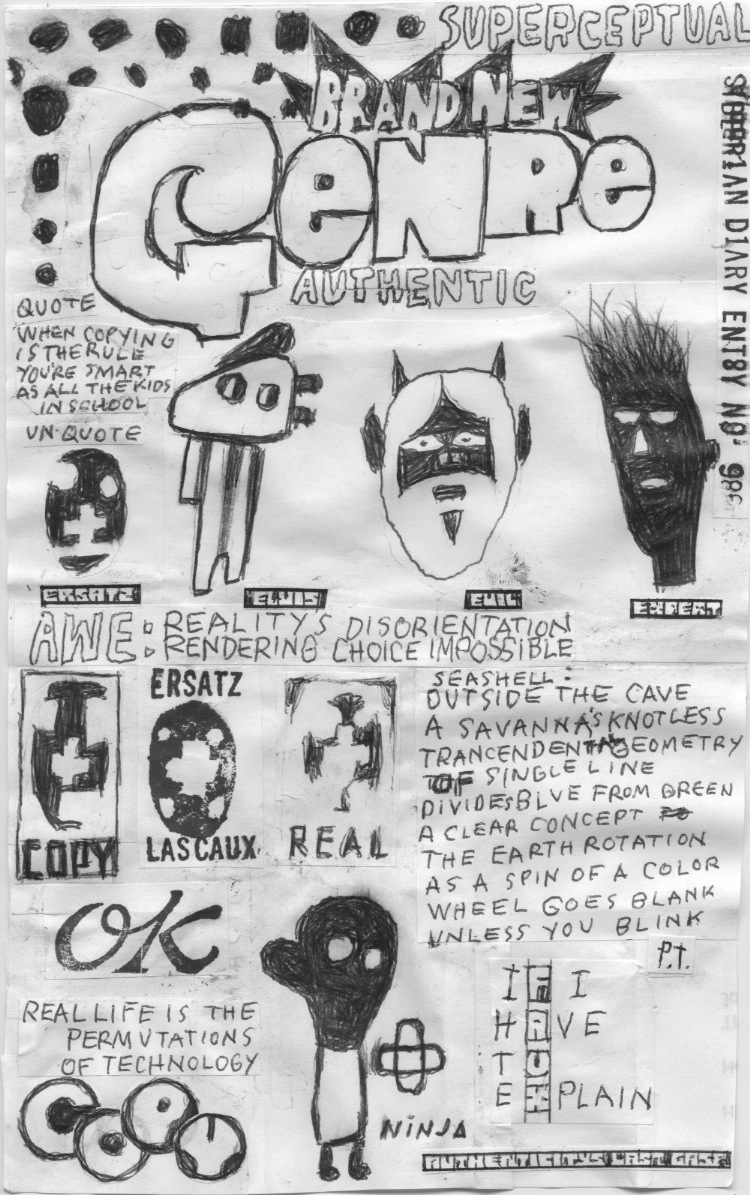 SUPERCEPTUAL
BRAND NEW
GENRE
AUTHENTIC
DIARY ENT8Y NO' 986
QUOTE
WHEN COPYING
IS THE RULE
YOU'RE SMART
AS ALL THE KIDS
IN SCHOOL
UN-QUOTE
ERSATZ
ELVIS
EVIL
EXPERT
AWE: REALITY'S DISORIENTATION
RENDERING CHOICE IMPOSSIBLE
COPY
ERSATZ
LASCAUX
REAL
SEASHELL:
OUTSIDE THE CAVE
A SAVANNA'S KNOTLESS
TRANCENDENTAL GEOMETRY
OF SINGLE LINE
DIVIDES BLUE FROM GREEN
A CLEAR CONCEPT
THE EARTH ROTATION
AS A SPIN OF A COLOR
WHEEL GOES BLANK
UNLESS YOU BLINK
P.T.
OK
REAL LIFE IS THE
PERMUTATIONS
OF TECHNOLOGY
NiNJA
IF I
HAVE
TO
EXPLAIN
AUTHENTICITY'S LAST GASP